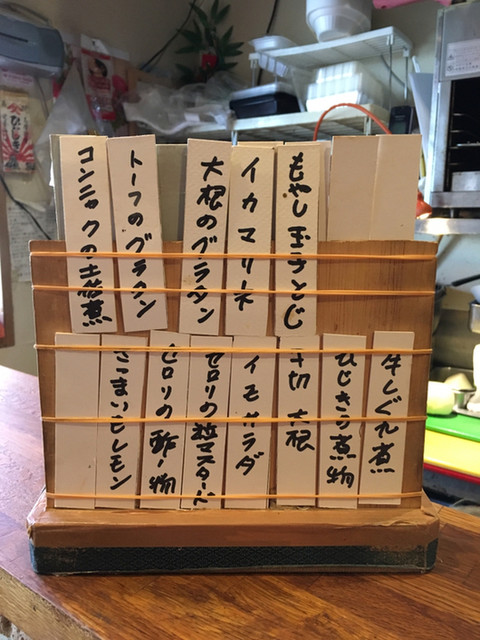 もやし玉子とじ
イカマリネ
大根のグラタン
トーフのグラタン
コンニャクの土佐煮
牛しぐれ煮
ひじきの煮物
千切大根
イモサラダ
セロリの粒マスタード
セロリの酢の物
さつまいもレモン